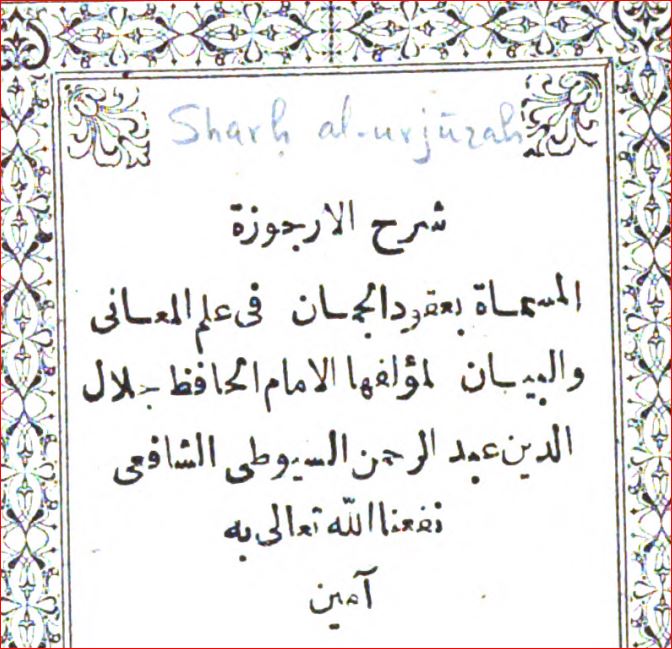 Sharḥ al-urjūzah
شرح الارجوزة
المسماة بعقود الجمان فى علم المعانى
والبيان لمؤلفها الامام الحافظ جلال
الدين عبد الرحمن السيوطى الشافعى
نفعنا الله تعالى به
آمين